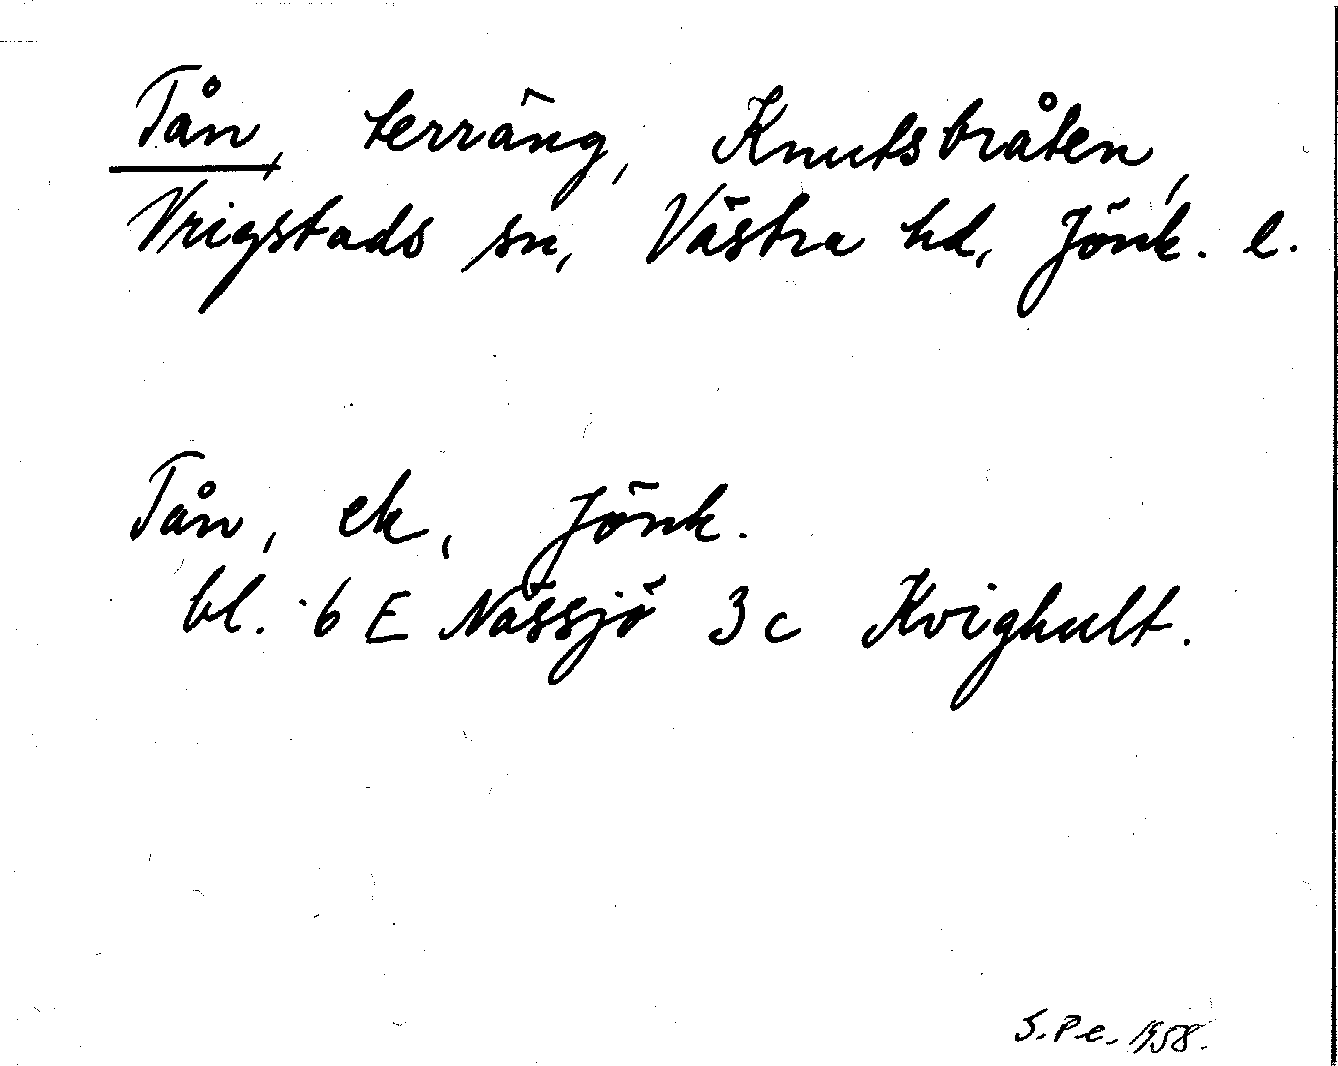 Tån, terräng, Knutsbråten,
Vrigstads sn, Västra hd, Jönk. l.
Tån, ek, Jönk.
bl. 6 E Nässjö 3 c Kvighult.
S.Pe. 1958.